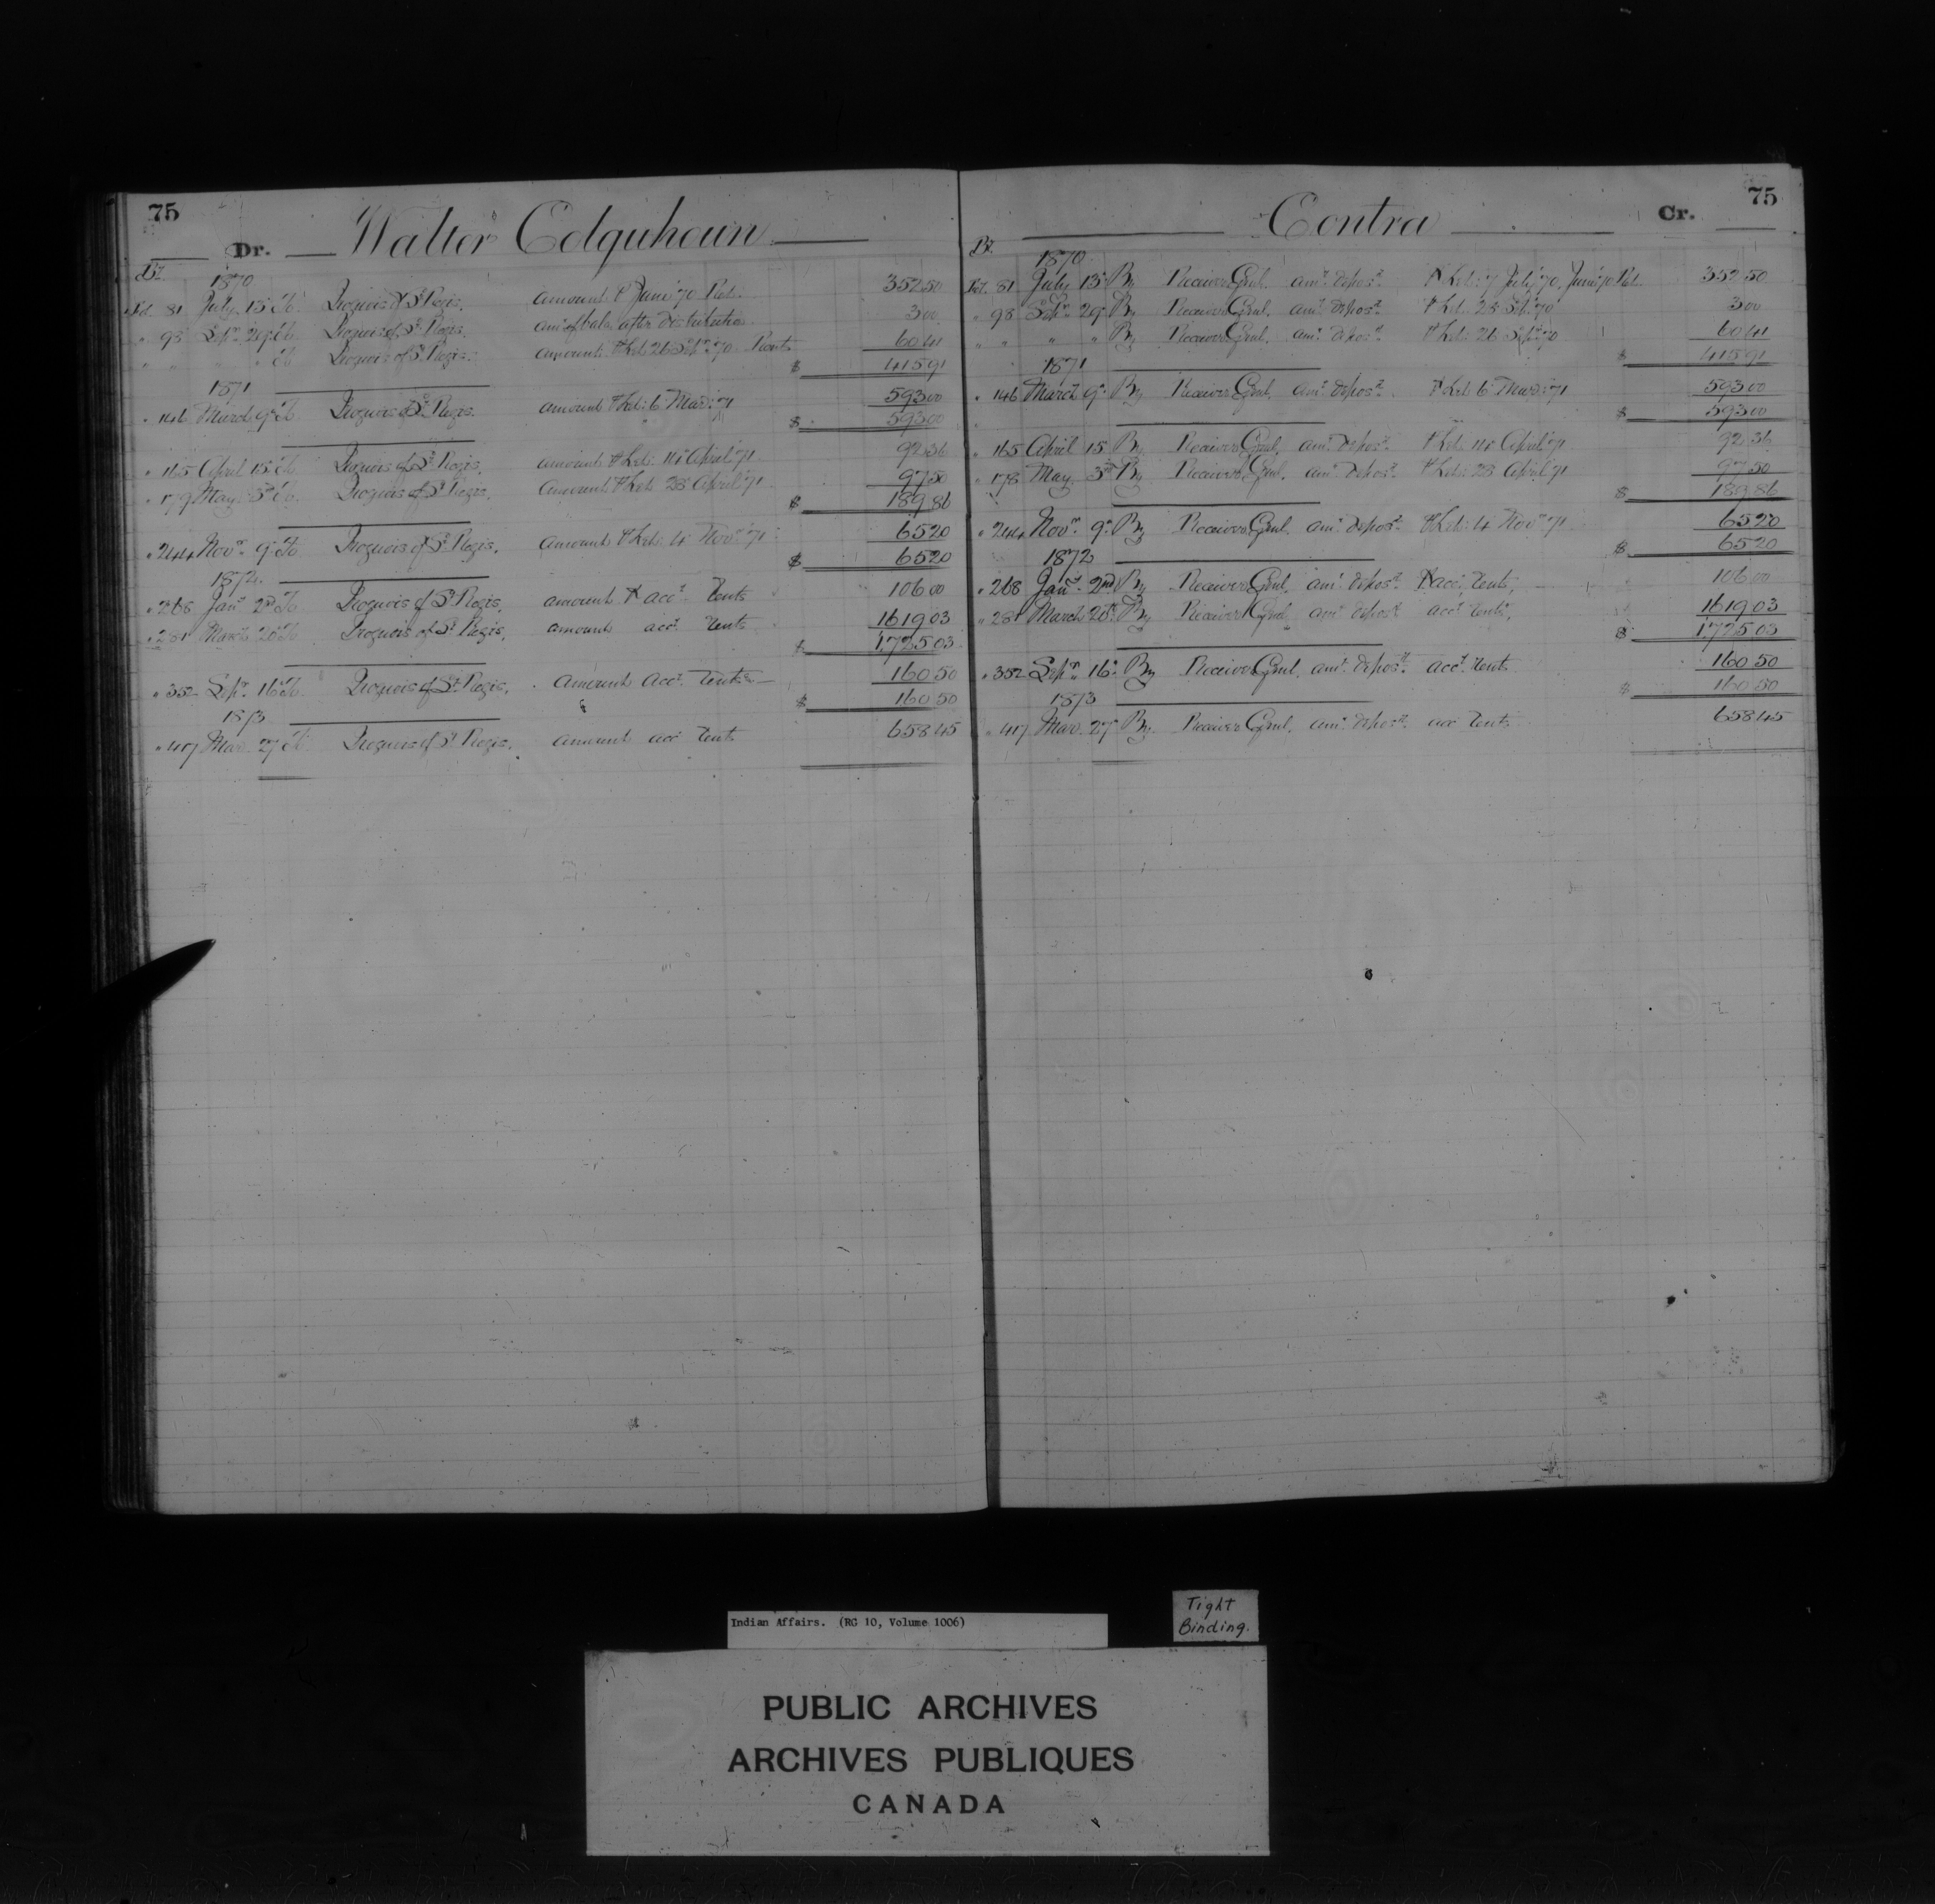 75
Dr. Walter Colquhoun
1870
Fol. 81 July 13 To Iroquois of St Regis. amount P June '70 Ret. 352 50
" 98 Sepr 29 To Iroquois of St Regis. amt of bale after distribution 3 00
" " " " To Iroquois of St Regis. amount P Let 26 Sepr '70 Rents 60 41
$ 415 91
1871
" 146 March 9 To Iroquois of St Regis. amount P Let: 6 Mar: '71 593 00
$ 593 00
" 165 April 15 To Iroquois of St Regis. amount P Let: 14 April '71 92 36
" 179 May 3d To Iroquois of St Regis. amount P Let 28 April '71 97 50
$ 189 86
" 244 Novr 9 To Iroquois of St Regis. amount P Let: 4 Novr '71 65 20
$ 65 20
1872
" 268 Jany 2nd To Iroquois of St Regis, amount P acct Rents 106 00
" 281 March 20 To Iroquois of St Regis, amount acct Rents 1619 03
$ 1725 03
" 352 Sepr 16 To Iroquois of St Regis, amount acct Rents 160 50
$ 160 50
1873
" 417 Mar. 27 To Iroquois of St Regis. amount acct Rents 658 45
75
Contra Cr.
1870
Fol. 81 July 13 By Receiver Genl. amt depost P Let: 7 July '70, June '70 Ret. 352 50
" 98 Sepr 29 By Receiver Genl. amt depost P Let. 28 Sep. '70 3 00
" " " " By Receiver Genl. amt depost P Let: 26 Sept '70 60 41
$ 415 91
1871
" 146 March 9 By Receiver Genl. amt depost P Let 6 Mar: '71 593 00
$ 593 00
" 165 April 15 By Receiver Genl. amt depost P Let: 14 April '71 92 36
" 178 May 3rd By Receiver Genl. amt depost P Let: 28 April '71 97 50
$ 189 86
" 244 Novr 9 By Receiver Genl. amt depost P Let: 4 Novr '71 65 20
$ 65 20
1872
" 268 Jany 2nd By Receiver Genl. amt depost P acct Rents, 106 00
" 281 March 20 By Receiver Genl. amt depost acct Rents, 1619 03
$ 1725 03
" 352 Sepr 16 By Receiver Genl. amt depost acct Rents 160 50
$ 160 50
1873
" 417 Mar. 27 By Receiver Genl. amt depost acct Rents 658 45
Indian Affairs. (RG 10, Volume 1006)
Tight
Binding.
PUBLIC ARCHIVES
ARCHIVES PUBLIQUES
CANADA